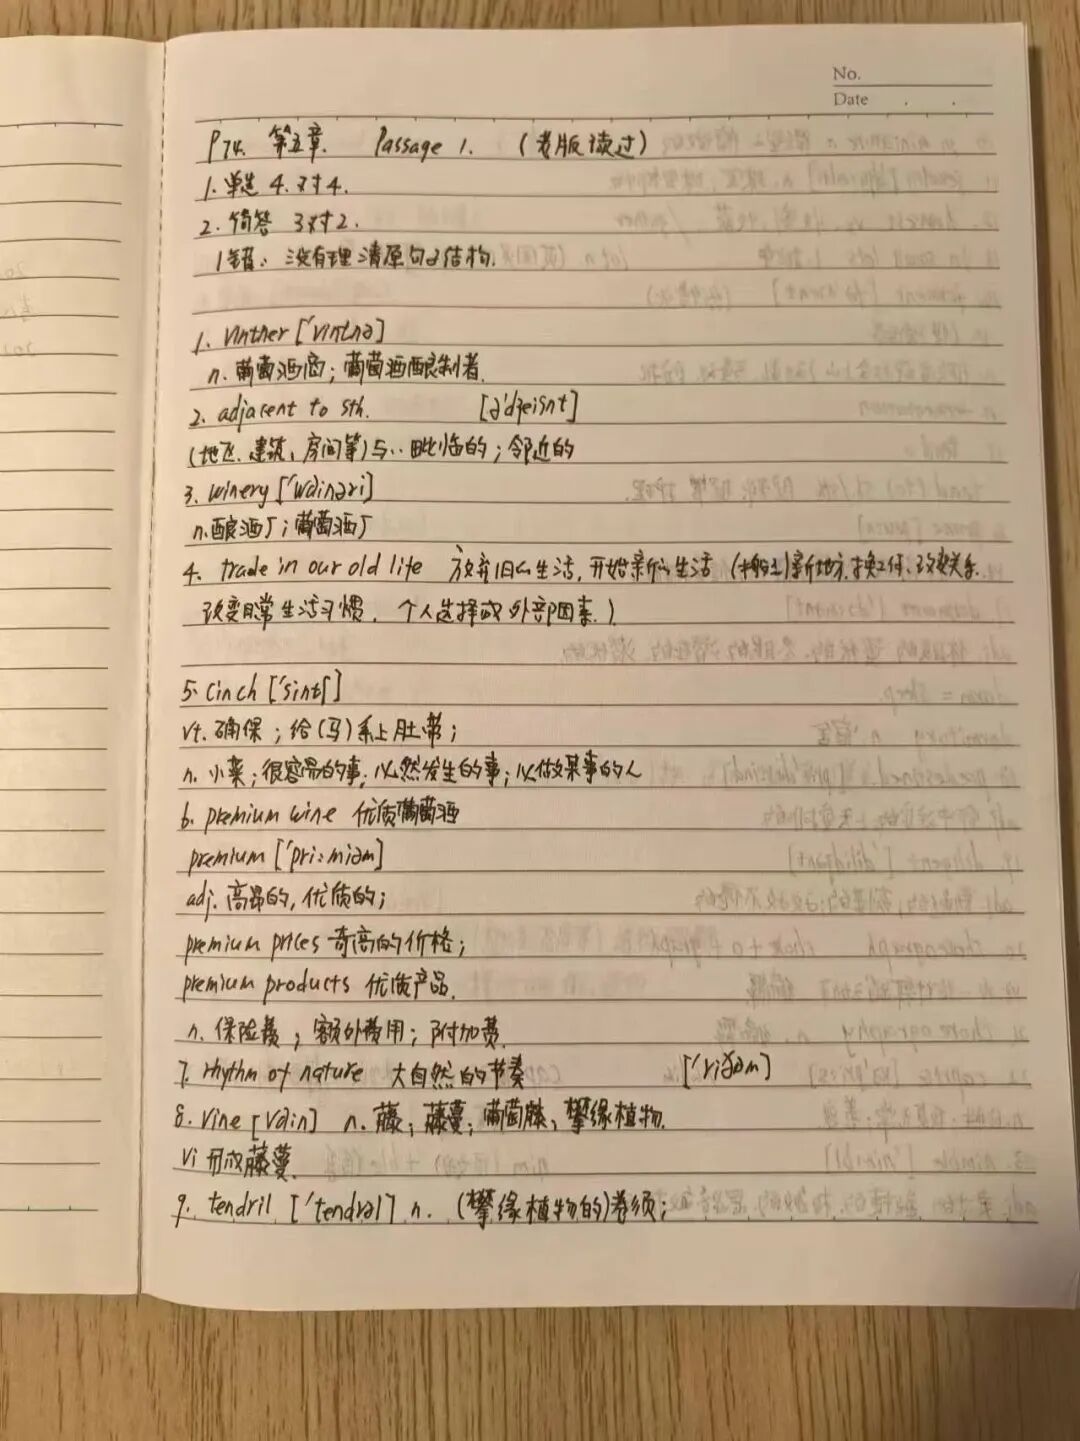 No.
Date
P74. 第五章. Passage 1. (老版读过)
1. 单选 4. 对4.
2. 简答 3对2.
1错: 没有理清原句子结构.
1. vintner ['vintnə]
n. 葡萄酒商; 葡萄酒酿制者.
2. adjacent to sth. [ə'dʒeisnt]
(地区、建筑、房间等)与..毗临的; 邻近的
3. winery ['wainəri]
n. 酿酒厂; 葡萄酒厂
4. trade in our old life 放弃旧的生活, 开始新的生活 (搬到新地方.换工作.改变关系.
改变日常生活习惯, 个人选择或外部因素.)
5. cinch ['sintʃ]
vt. 确保; 给(马)系上肚带;
n. 小菜; 很容易的事; 必然发生的事; 必做某事的人
6. premium wine 优质葡萄酒
premium ['pri:miəm]
adj. 高昂的, 优质的;
premium prices 奇高的价格;
premium products 优质产品.
n. 保险费; 额外费用; 附加费.
7. rhythm of nature 大自然的节奏 ['riðəm]
8. vine [vain] n. 藤; 藤蔓; 葡萄藤; 攀缘植物.
vi 形成藤蔓.
9. tendril ['tendrəl] n. (攀缘植物的)卷须;